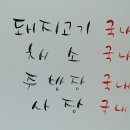 돼지고기 국내
채소 국내
주방당 국내
사당 국내